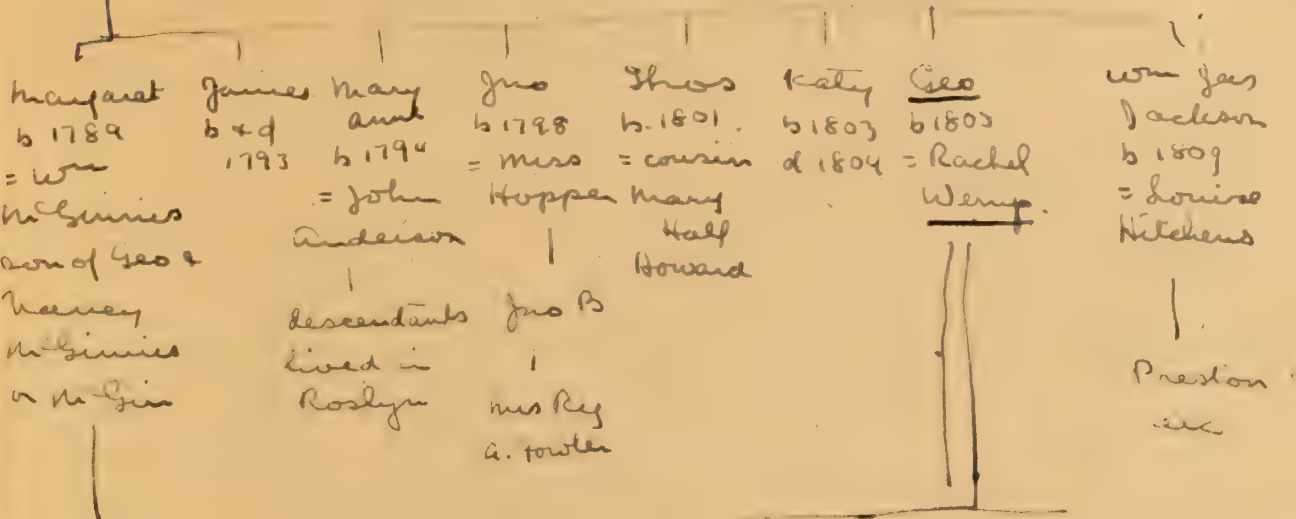 Margaret
b 1789
= Wm
McGinnies
son of Geo &
Nancey
McGinnies
or McGin
James
b & d
1793
Mary
Ann
b 1794
= John
Anderson
descendants
lived in
Roslyn
Jno
b 1798
= Miss
Hopper
Jno B
Mrs Reg
A. Fowler
Thos
b. 1801.
= cousin
Mary
Hall
Howard
Katy
b 1803
d 1804
Geo
b 1805
= Rachel
Wemp.
Wm Jas
Jackson
b 1809
= Louise
Hitchens
Preston
etc